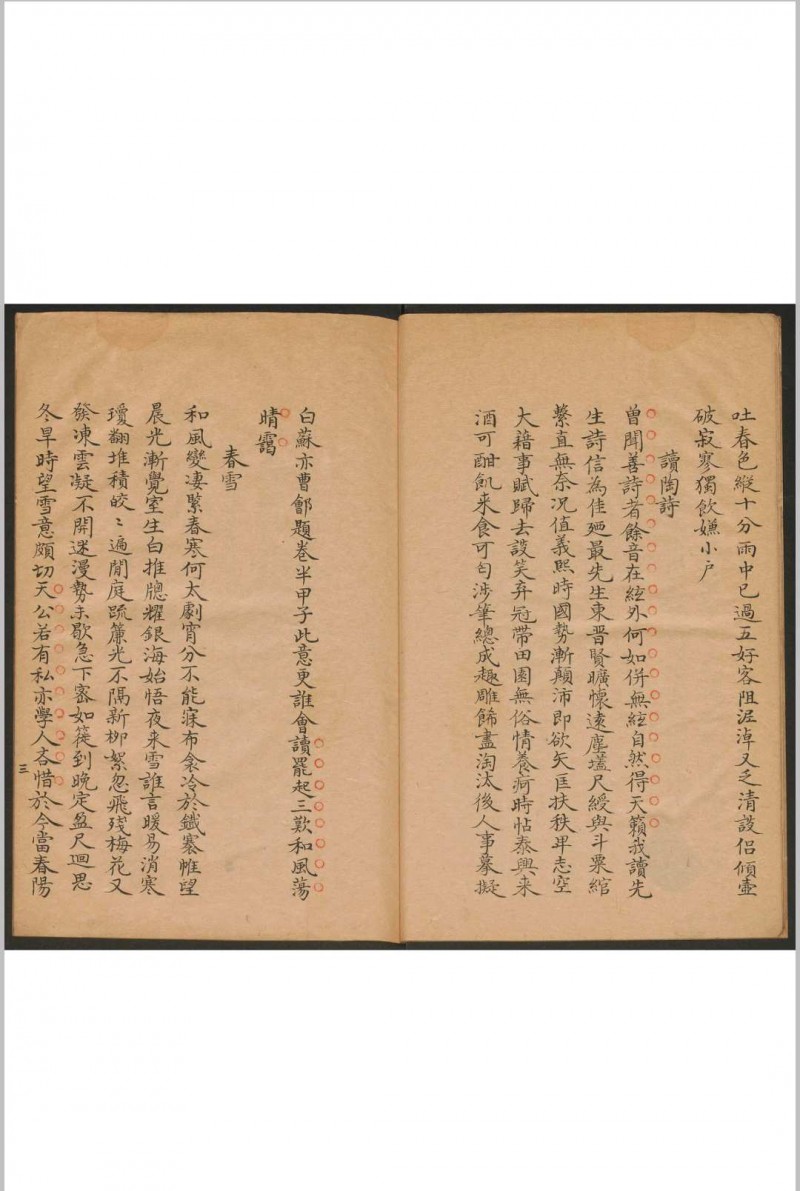 吐春色縱十分雨中已過五好客阻泥淖又乏清談侶傾壺
破寂寥獨飲嫌小戶
讀陶詩
曽聞善詩者餘音在絃外何如併無絃自然得天籟我讀先
生詩信為佳廼最先生東晋賢曠懷遠塵壒尺綬與斗粟綰
縈直無奈况值義熙時國勢漸顛沛即欲矢匡扶秩卑志空
大藉事賦歸去談笑弃冠帶田園無俗情養疴時怗泰興来
酒可酣飢来食可匄涉筆總成趣雕飾盡淘汰後人事摹擬
白蘇亦曹鄶題卷半甲子此意更誰會讀罷起三歎和風蕩
晴靄
春雪
和風變凄緊春寒何太劇宵分不能寐布衾冷於鐵褰帷望
晨光漸覺室生白推牕耀銀海始悟夜来雪誰言暖易消寒
瓊翻堆積皎〻遍閒庭疏簾光不隔新柳絮忽飛殘梅花又
發凍雲凝不開迷漫勢未歇急下審如篩到晚定盈尺廻思
冬旱時望雪意頗切天公若有私亦學人吝惜於今當春陽
三